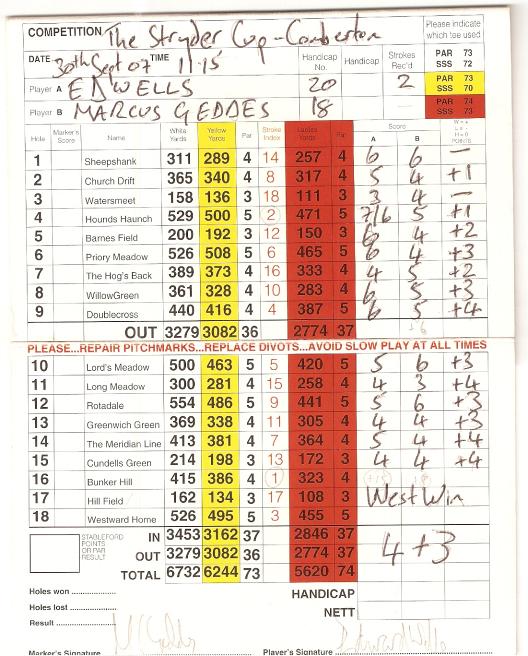 COMPETITION The Stryder Cup - Comberton
Please indicate which tee used
DATE 30th Sept 07 TIME 11.15
Handicap No. Handicap Strokes Rec'd
PAR 73 SSS 72
Player A ED WELLS 20 2
PAR 73 SSS 70
Player B MARCUS GEDDES 18
PAR 74 SSS 73
Hole Marker's Score Name White Yards Yellow Yards Par Stroke Index Ladies Yards Par Score A B W = + L - H = O POINTS
1 Sheepshank 311 289 4 14 257 4 6 6 –
2 Church Drift 365 340 4 8 317 4 5 4 +1
3 Watersmeet 158 136 3 18 111 3 3 4 –
4 Hounds Haunch 529 500 5 2 471 5 7/6 5 +1
5 Barnes Field 200 192 3 12 150 3 6 4 +2
6 Priory Meadow 526 508 5 6 465 5 6 4 +3
7 The Hog's Back 389 373 4 16 333 4 4 5 +2
8 WillowGreen 361 328 4 10 283 4 6 5 +3
9 Doublecross 440 416 4 4 387 5 6 5 +4
OUT 3279 3082 36 2774 37
PLEASE...REPAIR PITCHMARKS...REPLACE DIVOTS...AVOID SLOW PLAY AT ALL TIMES
10 Lord's Meadow 500 463 5 5 420 5 5 6 +3
11 Long Meadow 300 281 4 15 258 4 4 3 +4
12 Rotadale 554 486 5 9 441 5 5 6 +3
13 Greenwich Green 369 338 4 11 305 4 4 4 +3
14 The Meridian Line 413 381 4 7 364 4 5 4 +4
15 Cundells Green 214 198 3 13 172 3 4 4 +4
16 Bunker Hill 415 386 4 1 323 4
17 Hill Field 162 134 3 17 108 3 West Win
18 Westward Home 526 495 5 3 455 5
STABLEFORD POINTS OR PAR RESULT
IN 3453 3162 37 2846 37
OUT 3279 3082 36 2774 37 4+3
TOTAL 6732 6244 73 5620 74
Holes won HANDICAP
Holes lost NETT
Result
Marker's Signature Player's Signature